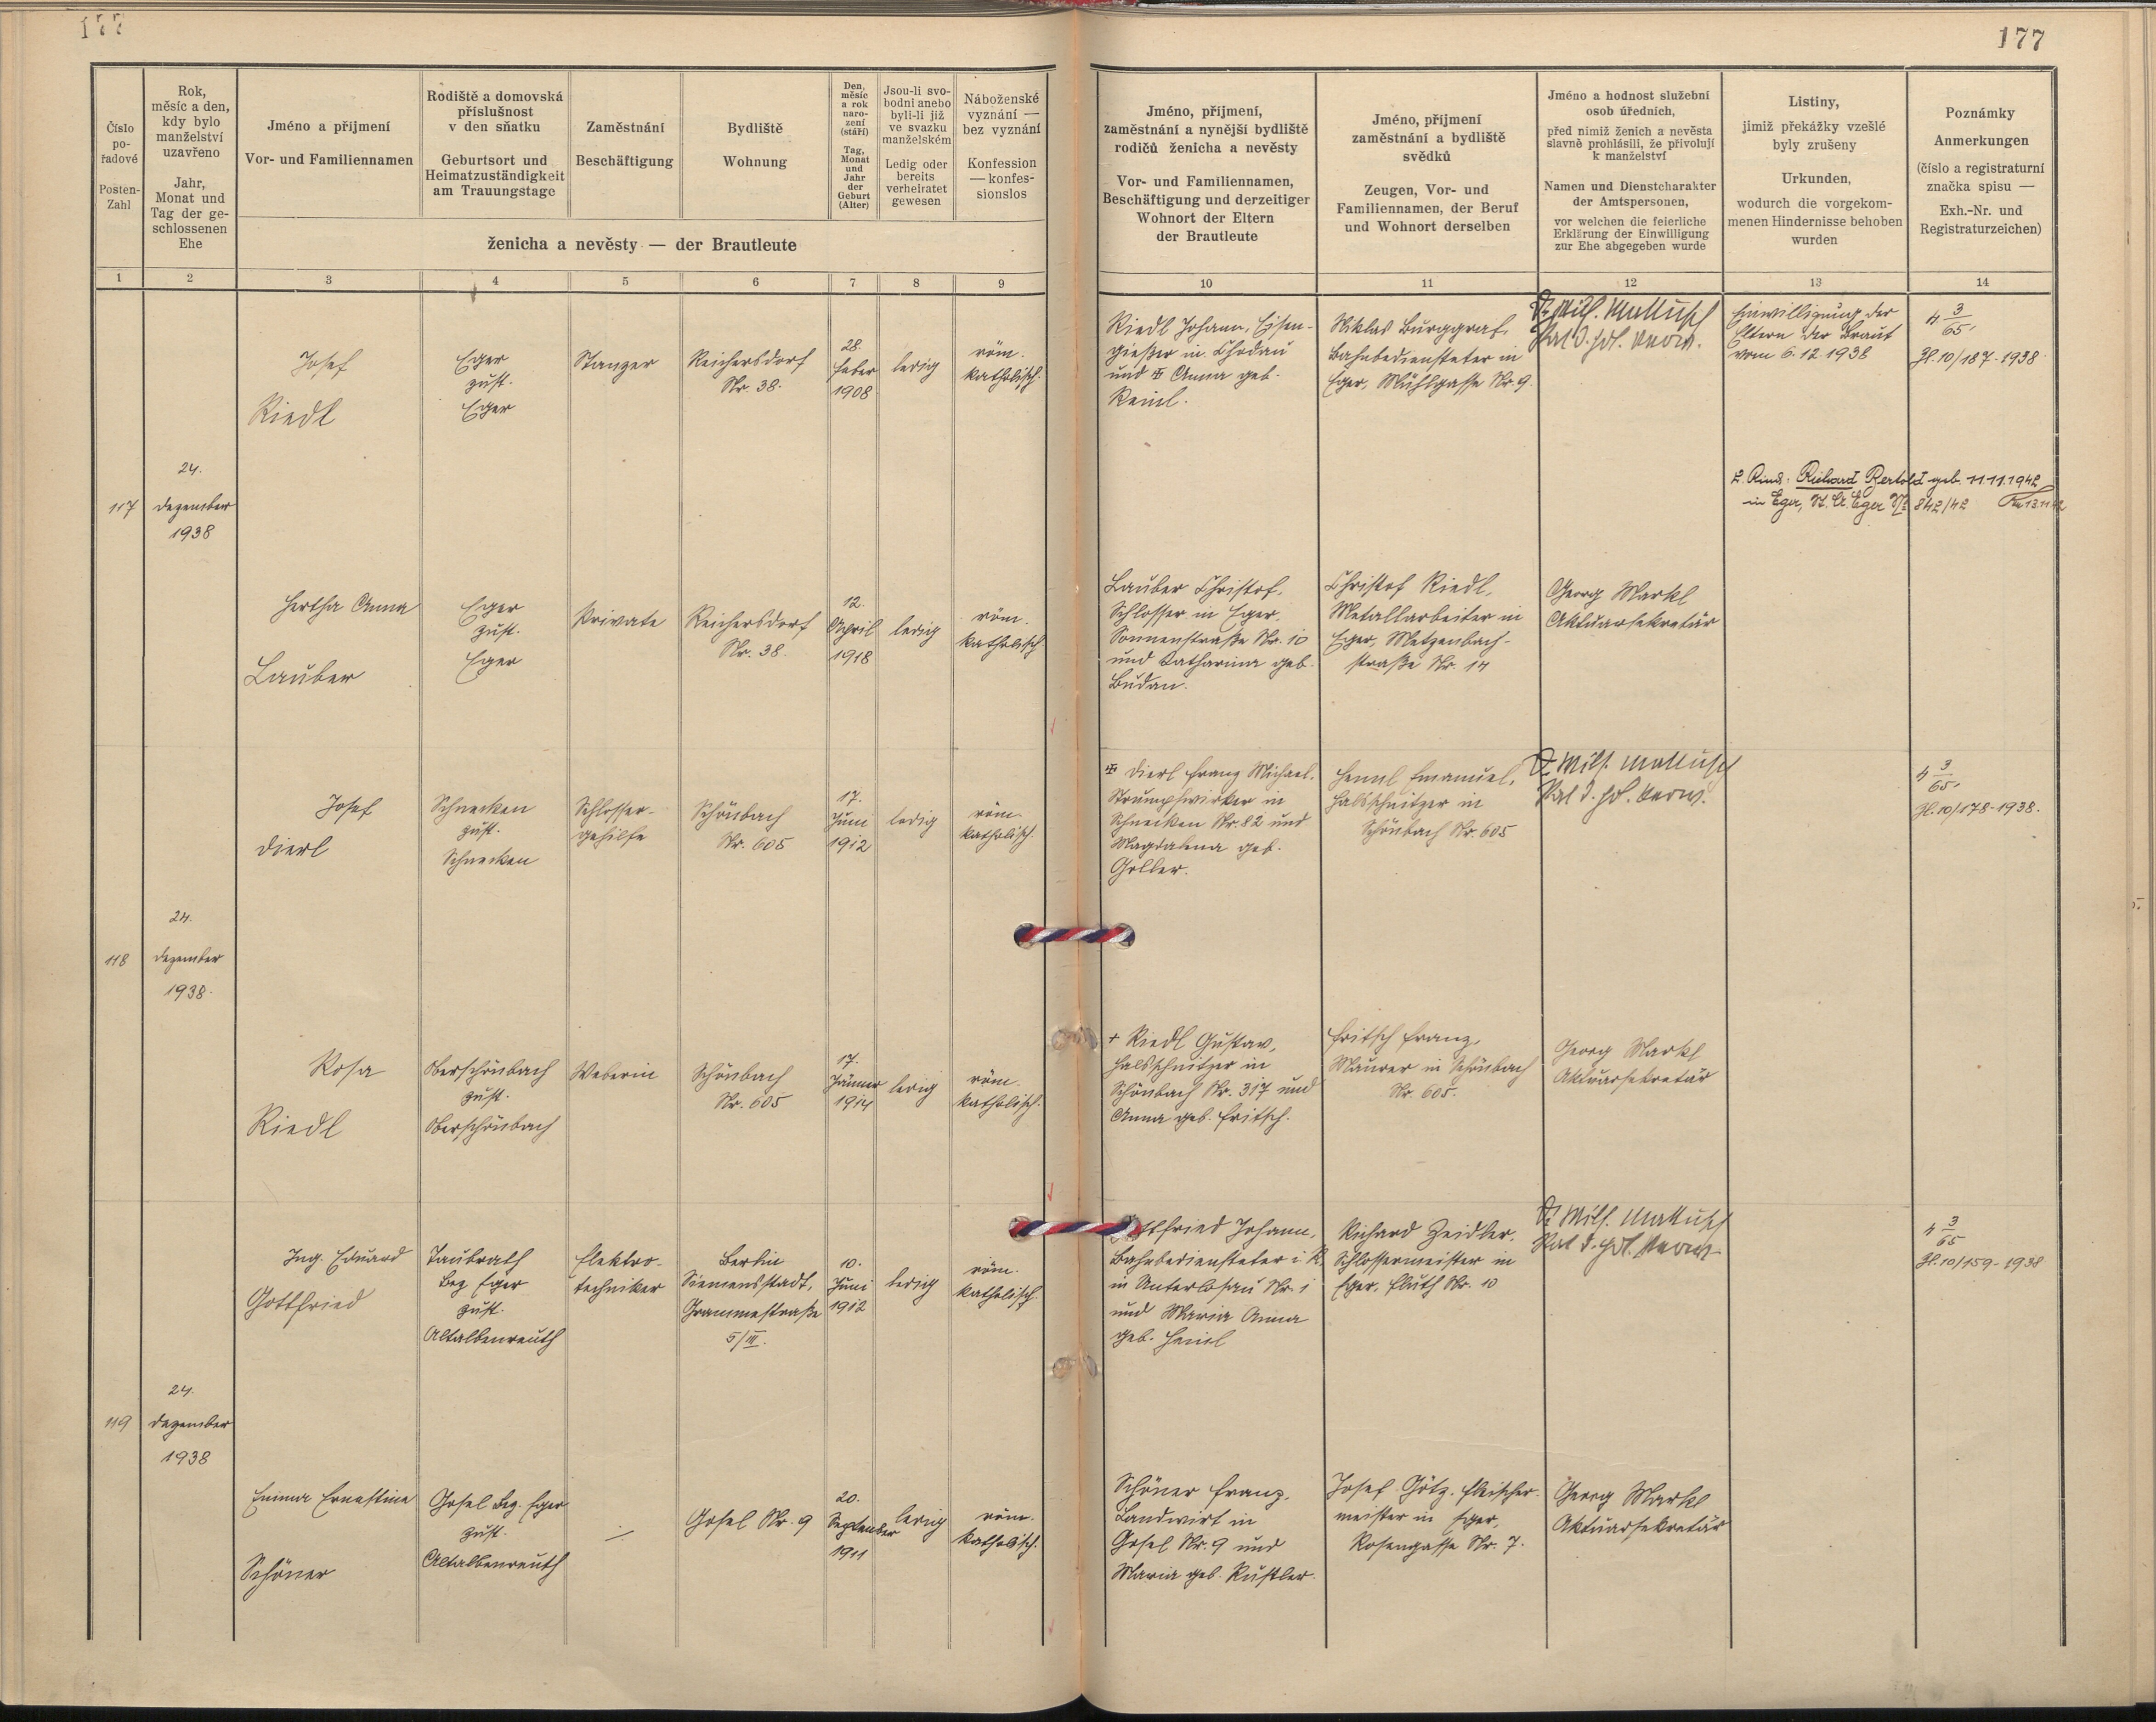 177
177
Číslo
po-
řadové
Posten-
Zahl
Rok,
měsíc a den,
kdy bylo
manželství
uzavřeno
Jahr,
Monat und
Tag der ge-
schlossenen
Ehe
Jméno a příjmení
Vor- und Familiennamen
Rodiště a domovská
příslušnost
v den sňatku
Geburtsort und
Heimatzuständigkeit
am Trauungstage
Zaměstnání
Beschäftigung
Bydliště
Wohnung
Den,
měsíc
a rok
naro-
zení
(stáří)
Tag,
Monat
und
Jahr
der
Geburt
(Alter)
Jsou-li svo-
bodni anebo
byli-li již
ve svazku
manželském
Ledig oder
bereits
verheiratet
gewesen
Náboženské
vyznání —
bez vyznání
Konfession
— konfes-
sionslos
ženicha a nevěsty — der Brautleute
Jméno, příjmení,
zaměstnání a nynější bydliště
rodičů ženicha a nevěsty
Vor- und Familiennamen,
Beschäftigung und derzeitiger
Wohnort der Eltern
der Brautleute
Jméno, příjmení
zaměstnání a bydliště
svědků
Zeugen, Vor- und
Familiennamen, der Beruf
und Wohnort derselben
Jméno a hodnost služební
osob úředních,
před nimiž ženich a nevěsta
slavně prohlásili, že přivolují
k manželství
Namen und Dienstcharakter
der Amtspersonen,
vor welchen die feierliche
Erklärung der Einwilligung
zur Ehe abgegeben wurde
Listiny,
jimiž překážky vzešlé
byly zrušeny
Urkunden,
wodurch die vorgekom-
menen Hindernisse behoben
wurden
Poznámky
Anmerkungen
(číslo a registraturní
značka spisu —
Exh.-Nr. und
Registraturzeichen)
1 2 3 4 5 6 7 8 9 10 11 12 13 14
117
24.
Dezember
1938
Josef
Riedl
Eger
zust.
Eger
Stanzer
Reichersdorf
Nr. 38.
28.
Feber
1908
ledig
röm.
katholisch.
Riedl Johann, Eisen-
gießer in Chodau
und ✠ Anna geb.
Niklas Burggraf,
Bahnbediensteter in
Eger, Mühlgasse Nr. 9.
Einwilligung der
Eltern der Braut
vom 6.12.1938
4 3/65,
Zl. 10/187-1938.
2. Kind: Richard Bertold geb. 11.11.1942
in Eger, St. A. Eger Nr. 842/42
Hertha Anna
Lauber
Eger
zust.
Eger
Private
Reichersdorf
Nr. 38.
12.
April
1918
ledig
röm.
katholisch
Lauber Christof,
Schlosser in Eger,
Sonnenstraße Nr. 10
und Katharina geb.
Budan.
Christof Riedl,
Metallarbeiter in
Eger, Metzenbach-
straße Nr. 14
Georg Markl
Aktuarsekretär
118
24.
Dezember
1938.
Josef
Dierl
Schnecken
zust.
Schnecken
Schlosser-
gehilfe
Schönbach
Nr. 605
17.
Juni
1912
ledig
röm.
katholisch.
✠ Dierl Franz Michael,
Strumpfwirker in
Schnecken Nr. 82 und
Magdalena geb.
Goller.
Hennl Emanuel,
Halsschnitzer in
Schönbach Nr. 605
4 3/65,
Zl. 10/178-1938.
Rosa
Riedl
Oberschönbach
zust.
Oberschönbach
Weberin
Schönbach
Nr. 605
17.
Jänner
1914
ledig
röm.
katholisch.
+ Riedl Gustav,
Halsschnitzer in
Schönbach Nr. 317 und
Anna geb. Fritsch.
Fritsch Franz,
Maurer in Schönbach
Nr. 605.
Georg Markl
Aktuarsekretär
119
24.
Dezember
1938
Ing. Eduard
Gottfried
Taubrath
Bez Eger
zust.
Altalbenreuth
Elektro-
techniker
Berlin
Siemensstadt,
Grammestraße
5/III.
10.
Juni
1912
ledig
röm.
katholisch.
Gottfried Johann,
Bahnbediensteter i. R.
in Unterlosau Nr. 1
und Maria Anna
geb.
Richard Zeidler,
Schlossermeister in
Eger, Fluth Nr. 10
4 3/65
Zl. 10/159-1938
Emma Ernestine
Schöner
Gosel Bez. Eger
zust.
Altalbenreuth
Gosel Nr. 9
20.
September
1911
ledig
röm.
katholisch.
Schöner Franz,
Landwirt in
Gosel Nr. 9 und
Maria geb. Rustler.
Josef Götz, Fleischer-
meister in Eger,
Rosengasse Nr. 7.
Georg Markl
Aktuarsekretär